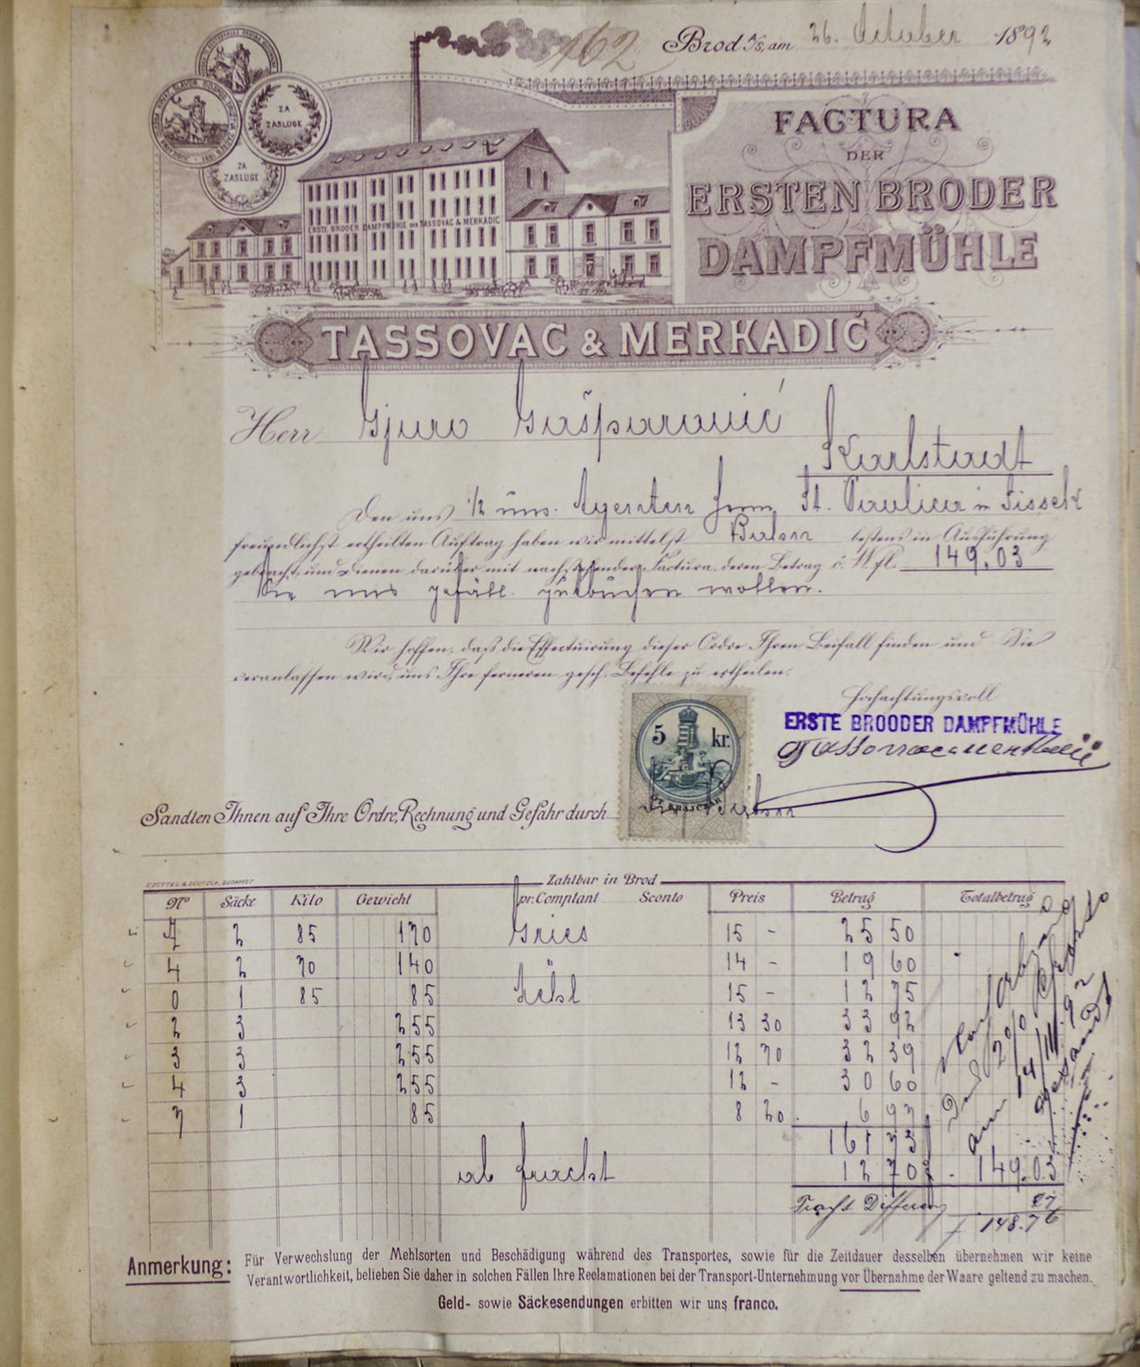 162
Brod a/S, am 26. October 1892
ZA ZASLUGE
ZA ZASLUGE
FACTURA
DER
ERSTEN BRODER
DAMPFMÜHLE
ERSTE BRODER DAMPFMÜHLE DER TASSOVAC & MERKADIC
TASSOVAC & MERKADIĆ
Herr Gjuro Gašparović
Karlstadt
Den uns 1/2 uns. Agenten St. Paulica in Sissek
freundlichst ertheilten Auftrag haben wir mittelst Bahn bestens in Ausführung
gebracht, und dienen darüber mit nachstehender Factura, deren Betrag ö. W. fl. 149.03
Sie uns gefäll. gutbuchen wollen.
Wir hoffen, daß die Effectuirung dieser Ordre Ihren Beifall finden und Sie
veranlassen wird, uns Ihre ferneren gesch. Befehle zu ertheilen.
Hochachtungsvoll
ERSTE BROODER DAMPFMÜHLE
Tassovac & Merkadić
5 kr.
Sandten Ihnen auf Ihre Ordre, Rechnung und Gefahr durch die Bahn
Zahlbar in Brod
No Säcke Kilo Gewicht pr. Comptant Sconto Preis Betrag Totalbetrag
2 85 170 Gries 15 - 25 50
4 2 70 140 " 14 - 19 60
0 1 85 85 Mehl 15 - 12 75
2 3 255 13 30 33 92
3 3 255 12 70 32 39
4 3 255 12 - 30 60
7 1 85 8 20 6 97
161 73
ab Fracht 12 70 149.03
Fracht Differenz 27
f 148.76
2% Sconto
am 14/11. 92
gesandt
Anmerkung: Für Verwechslung der Mehlsorten und Beschädigung während des Transportes, sowie für die Zeitdauer desselben übernehmen wir keine
Verantwortlichkeit, belieben Sie daher in solchen Fällen Ihre Reclamationen bei der Transport-Unternehmung vor Übernahme der Waare geltend zu machen.
Geld- sowie Säckesendungen erbitten wir uns franco.